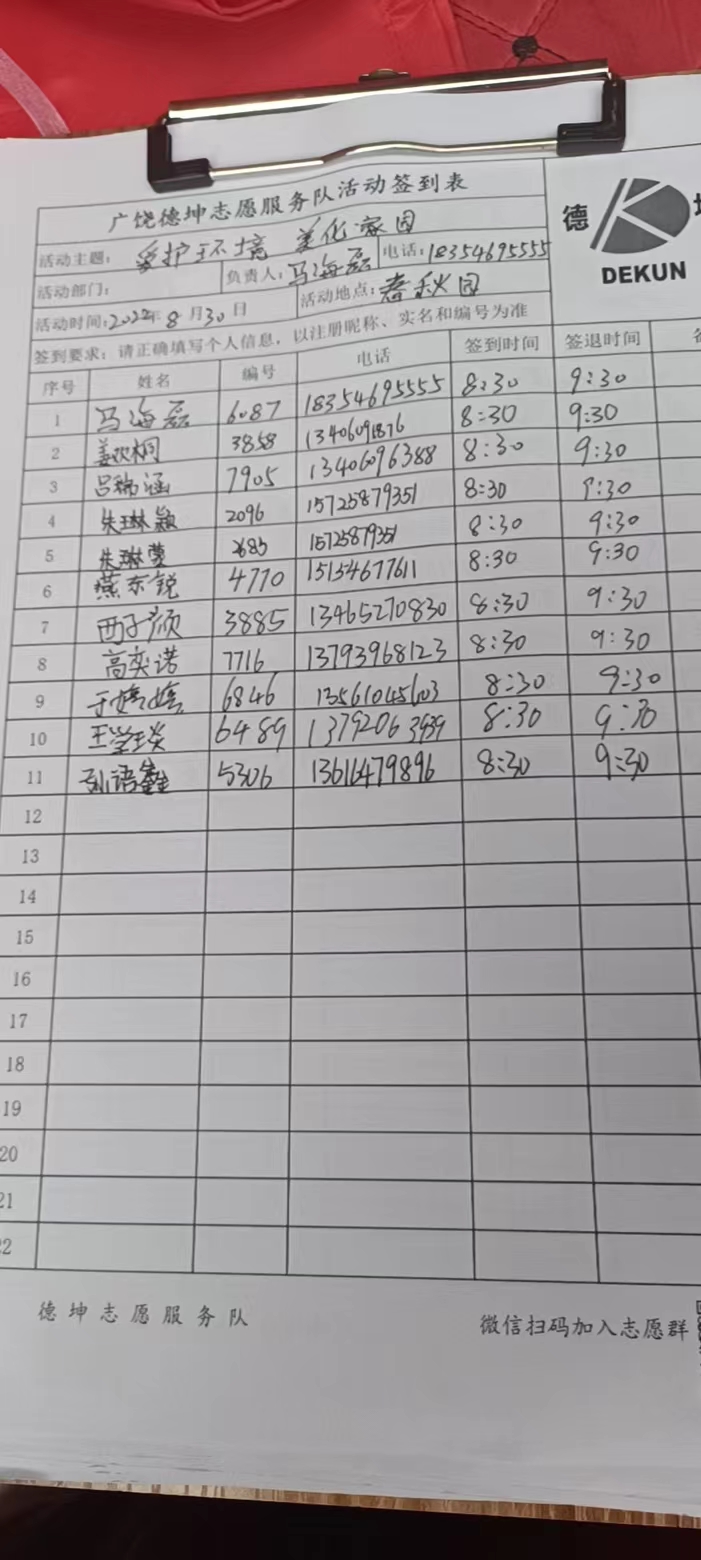 广饶德坤志愿服务队活动签到表
德
DEKUN
活动主题: 爱护环境 美化家园
活动部门: 负责人: 马海磊 电话: 18354695555
活动时间: 2022年 8 月 30 日 活动地点: 春秋园
签到要求: 请正确填写个人信息, 以注册昵称、实名和编号为准
序号 姓名 编号 电话 签到时间 签退时间
1 马海磊 6087 18354695555 8:30 9:30
2 姜欣桐 3858 8:30 9:30
3 吕瑞涵 7905 13406096388 8:30 9:30
4 朱琳颖 2096 15725879351 8:30 9:30
5 朱琳莹 2685 15725879351 8:30 9:30
6 燕东锐 4770 15154677611 8:30 9:30
7 西子颜 3885 13465270830 8:30 9:30
8 高奕诺 7716 13793968123 8:30 9:30
9 于婷婷 6846 13561045603 8:30 9:30
10 王学琰 6489 8:30 9:30
11 孙语 5306 13616479896 8:30 9:30
12
13
14
15
16
17
18
19
20
21
22
德坤志愿服务队 微信扫码加入志愿群